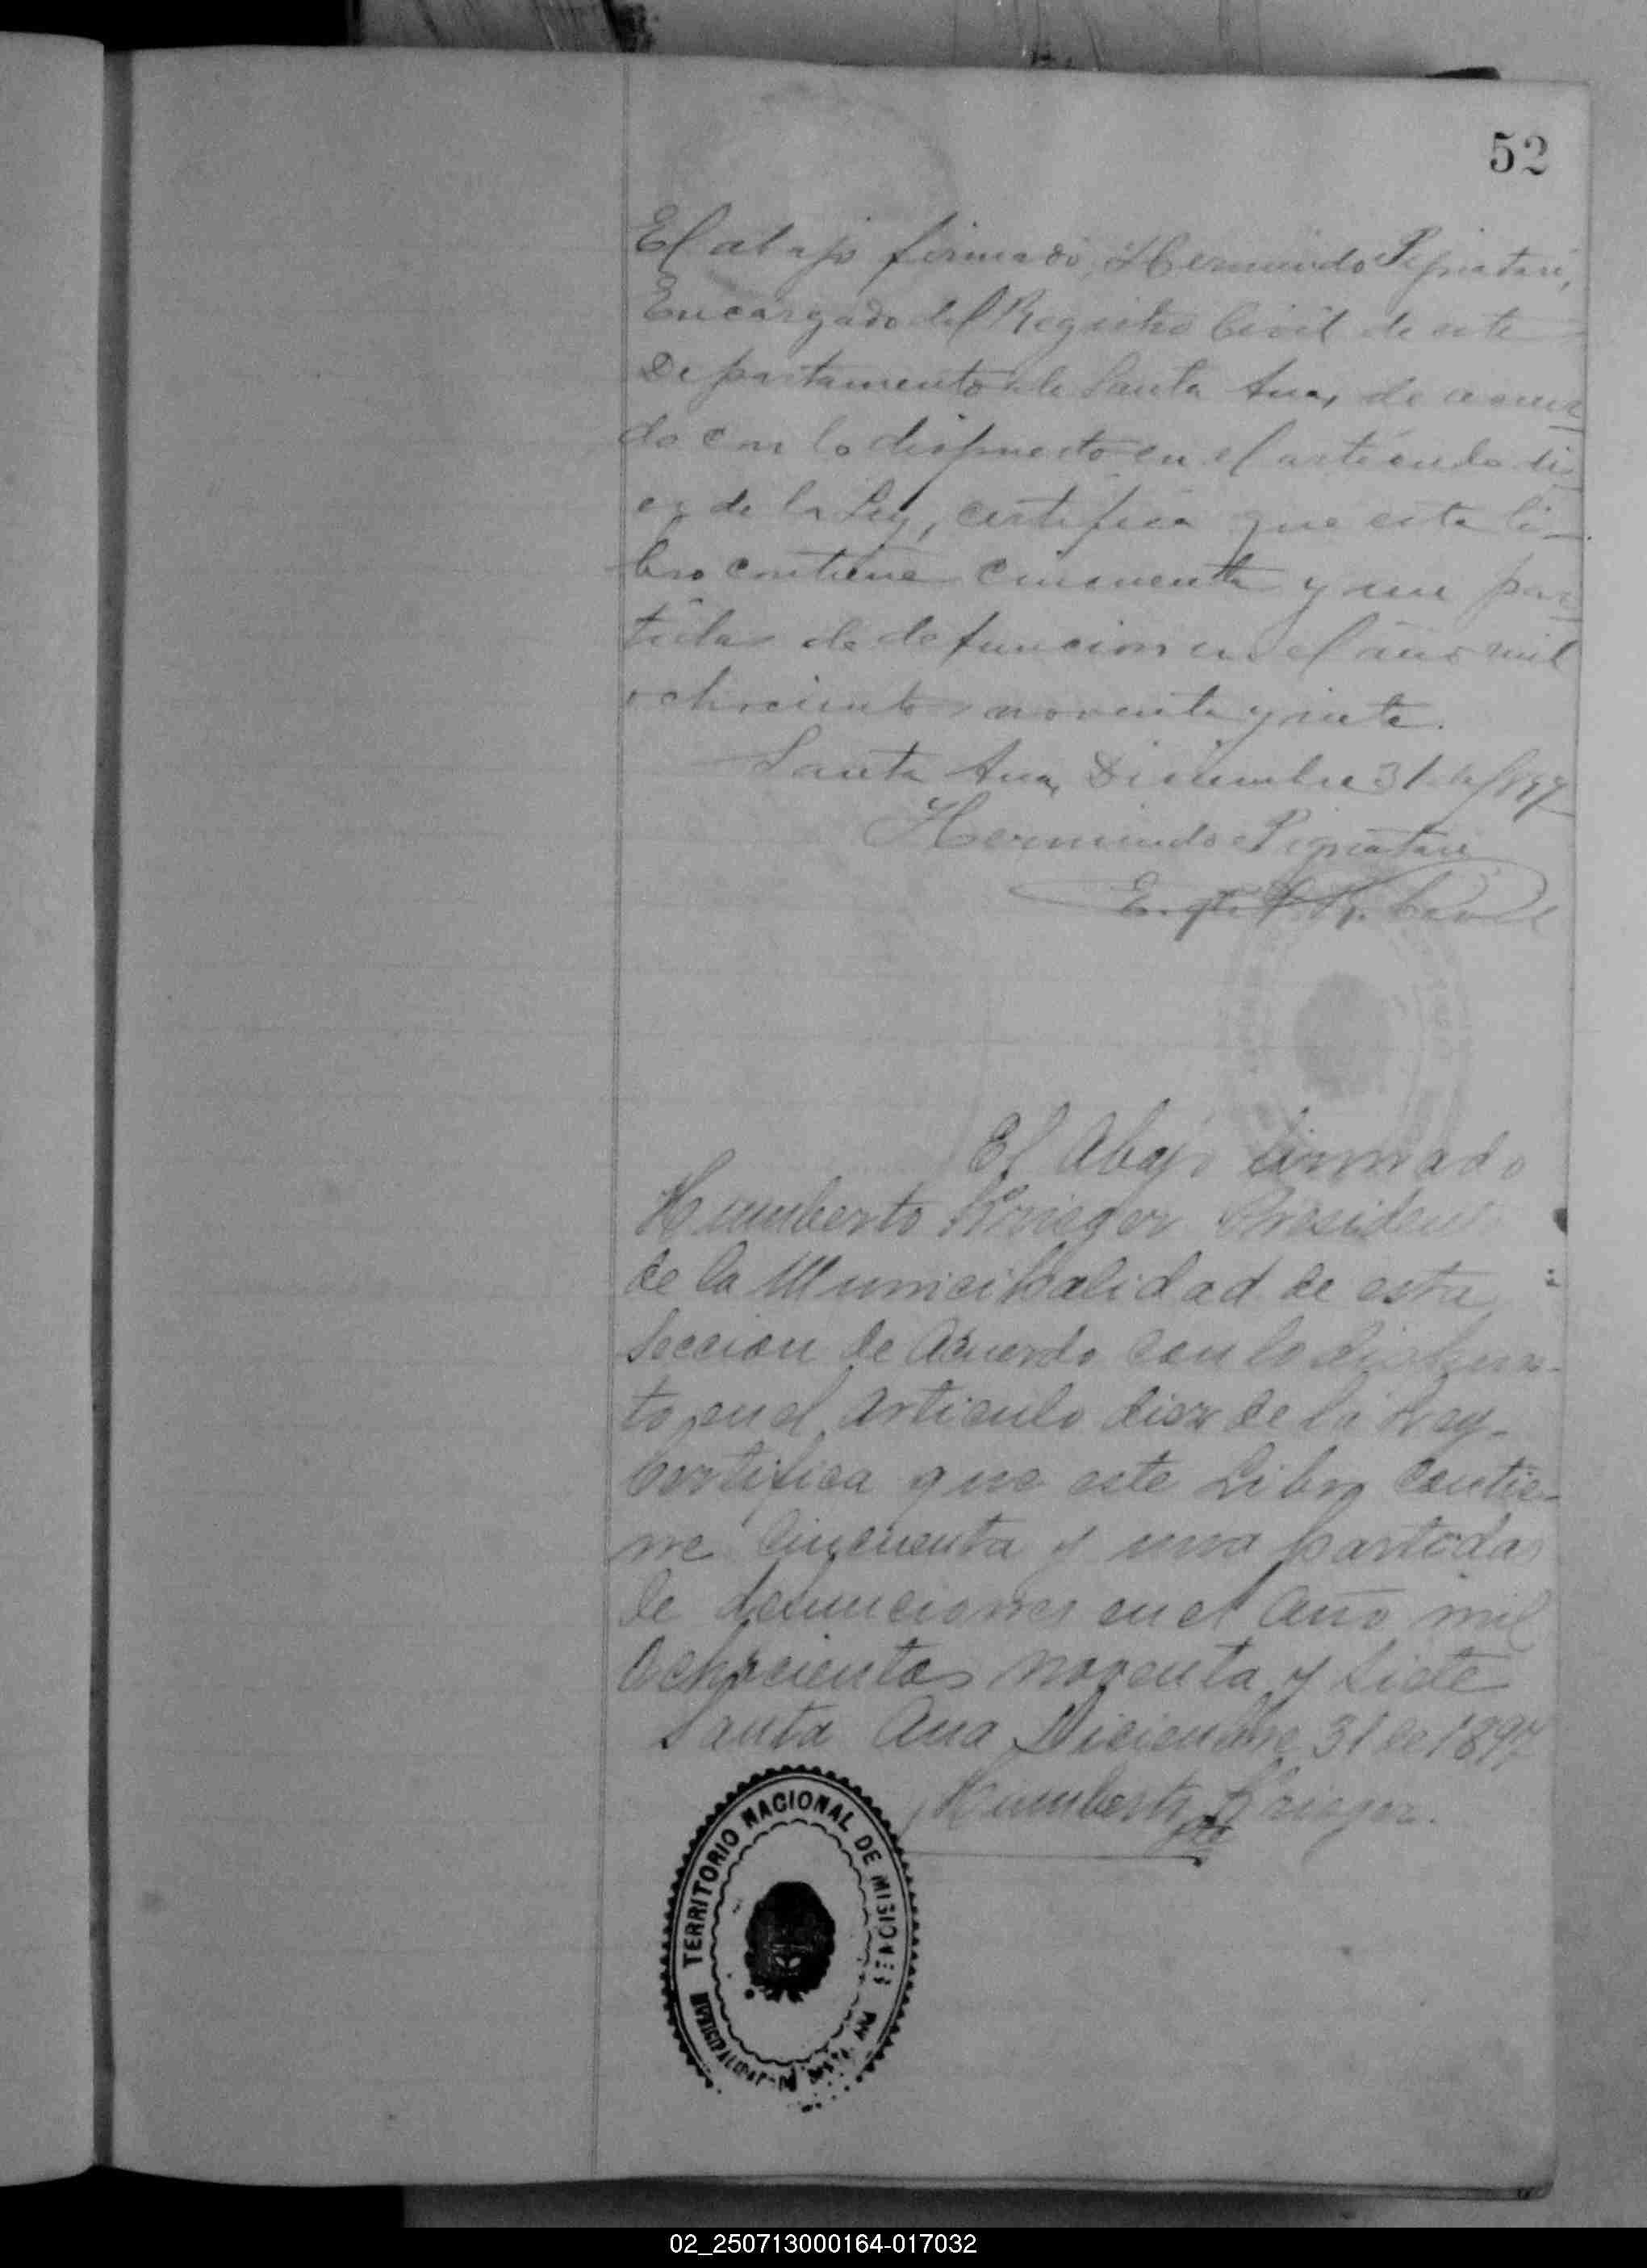 52
El abajo firmado, Hermindo Pignatari,
Encargado del Registro Civil de este
Departamento de Santa Ana, de acuer
do con lo dispuesto en el artículo di
ez de la Ley, certifica que este li-
bro contiene cincuenta y una par
tidas de defuncion en el año mil
ochocientos noventa y siete.
Santa Ana, Diciembre 31 de 1897
Hermindo Pignatari
Civil
El Abajo firmado
Humberto Krieger Presiden
de la Municipalidad de esta
Seccion de Acuerdo con lo dispues-
to en el articulo diez de la Ley-
Certifica que este Libro Contie-
ne Cincuenta y una partidas
de defunciones en el Año mil
Ochocientos noventa y siete
Santa Ana Diciembre 31 de 1897
Humberto Krieger.
TERRITORIO NACIONAL DE MISIONES
02_250713000164-017032